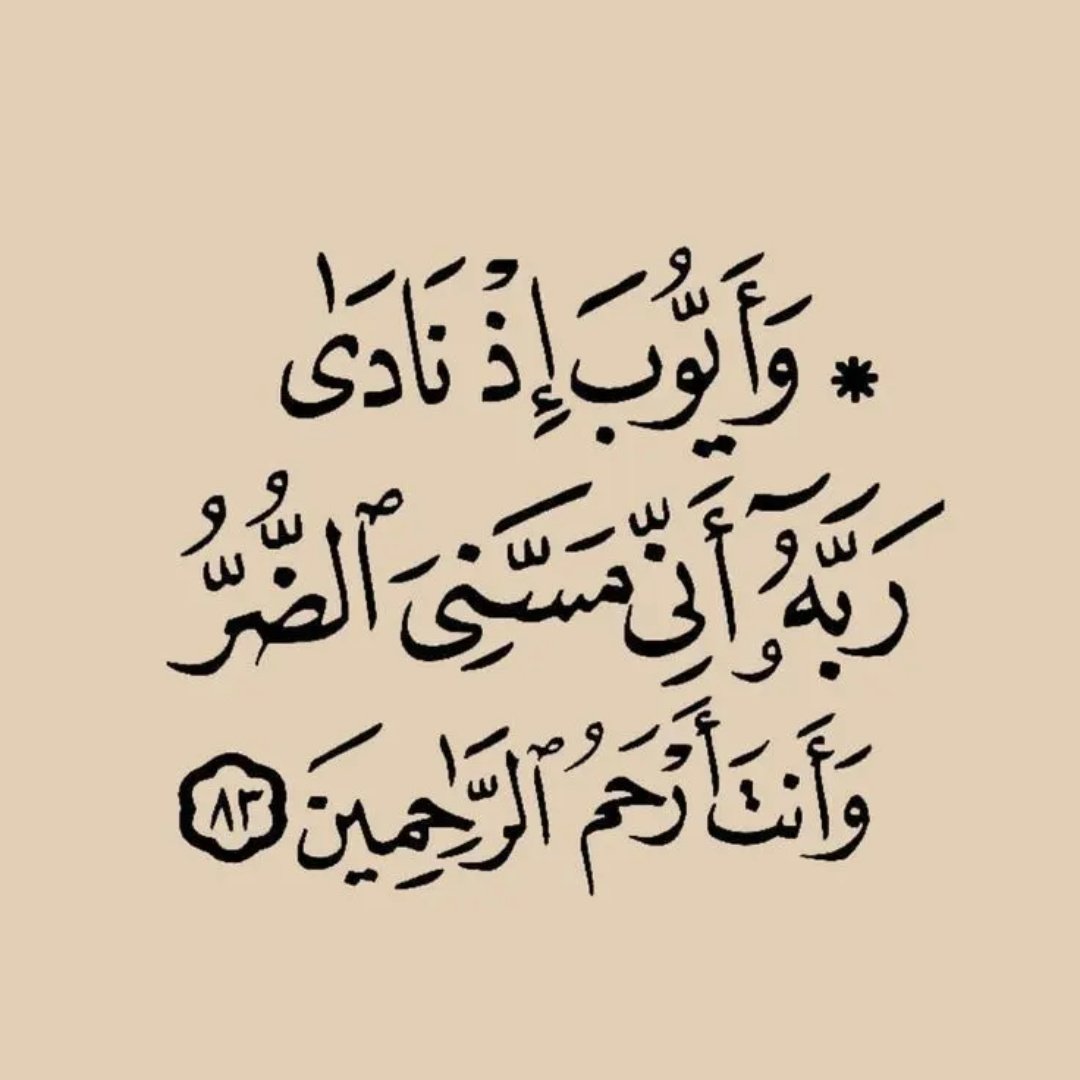 * وَأَيُّوبَ إِذْ نَادَىٰ
رَبَّهُۥٓ أَنِّى مَسَّنِىَ ٱلضُّرُّ
وَأَنتَ أَرْحَمُ ٱلرَّٰحِمِينَ ٨٣